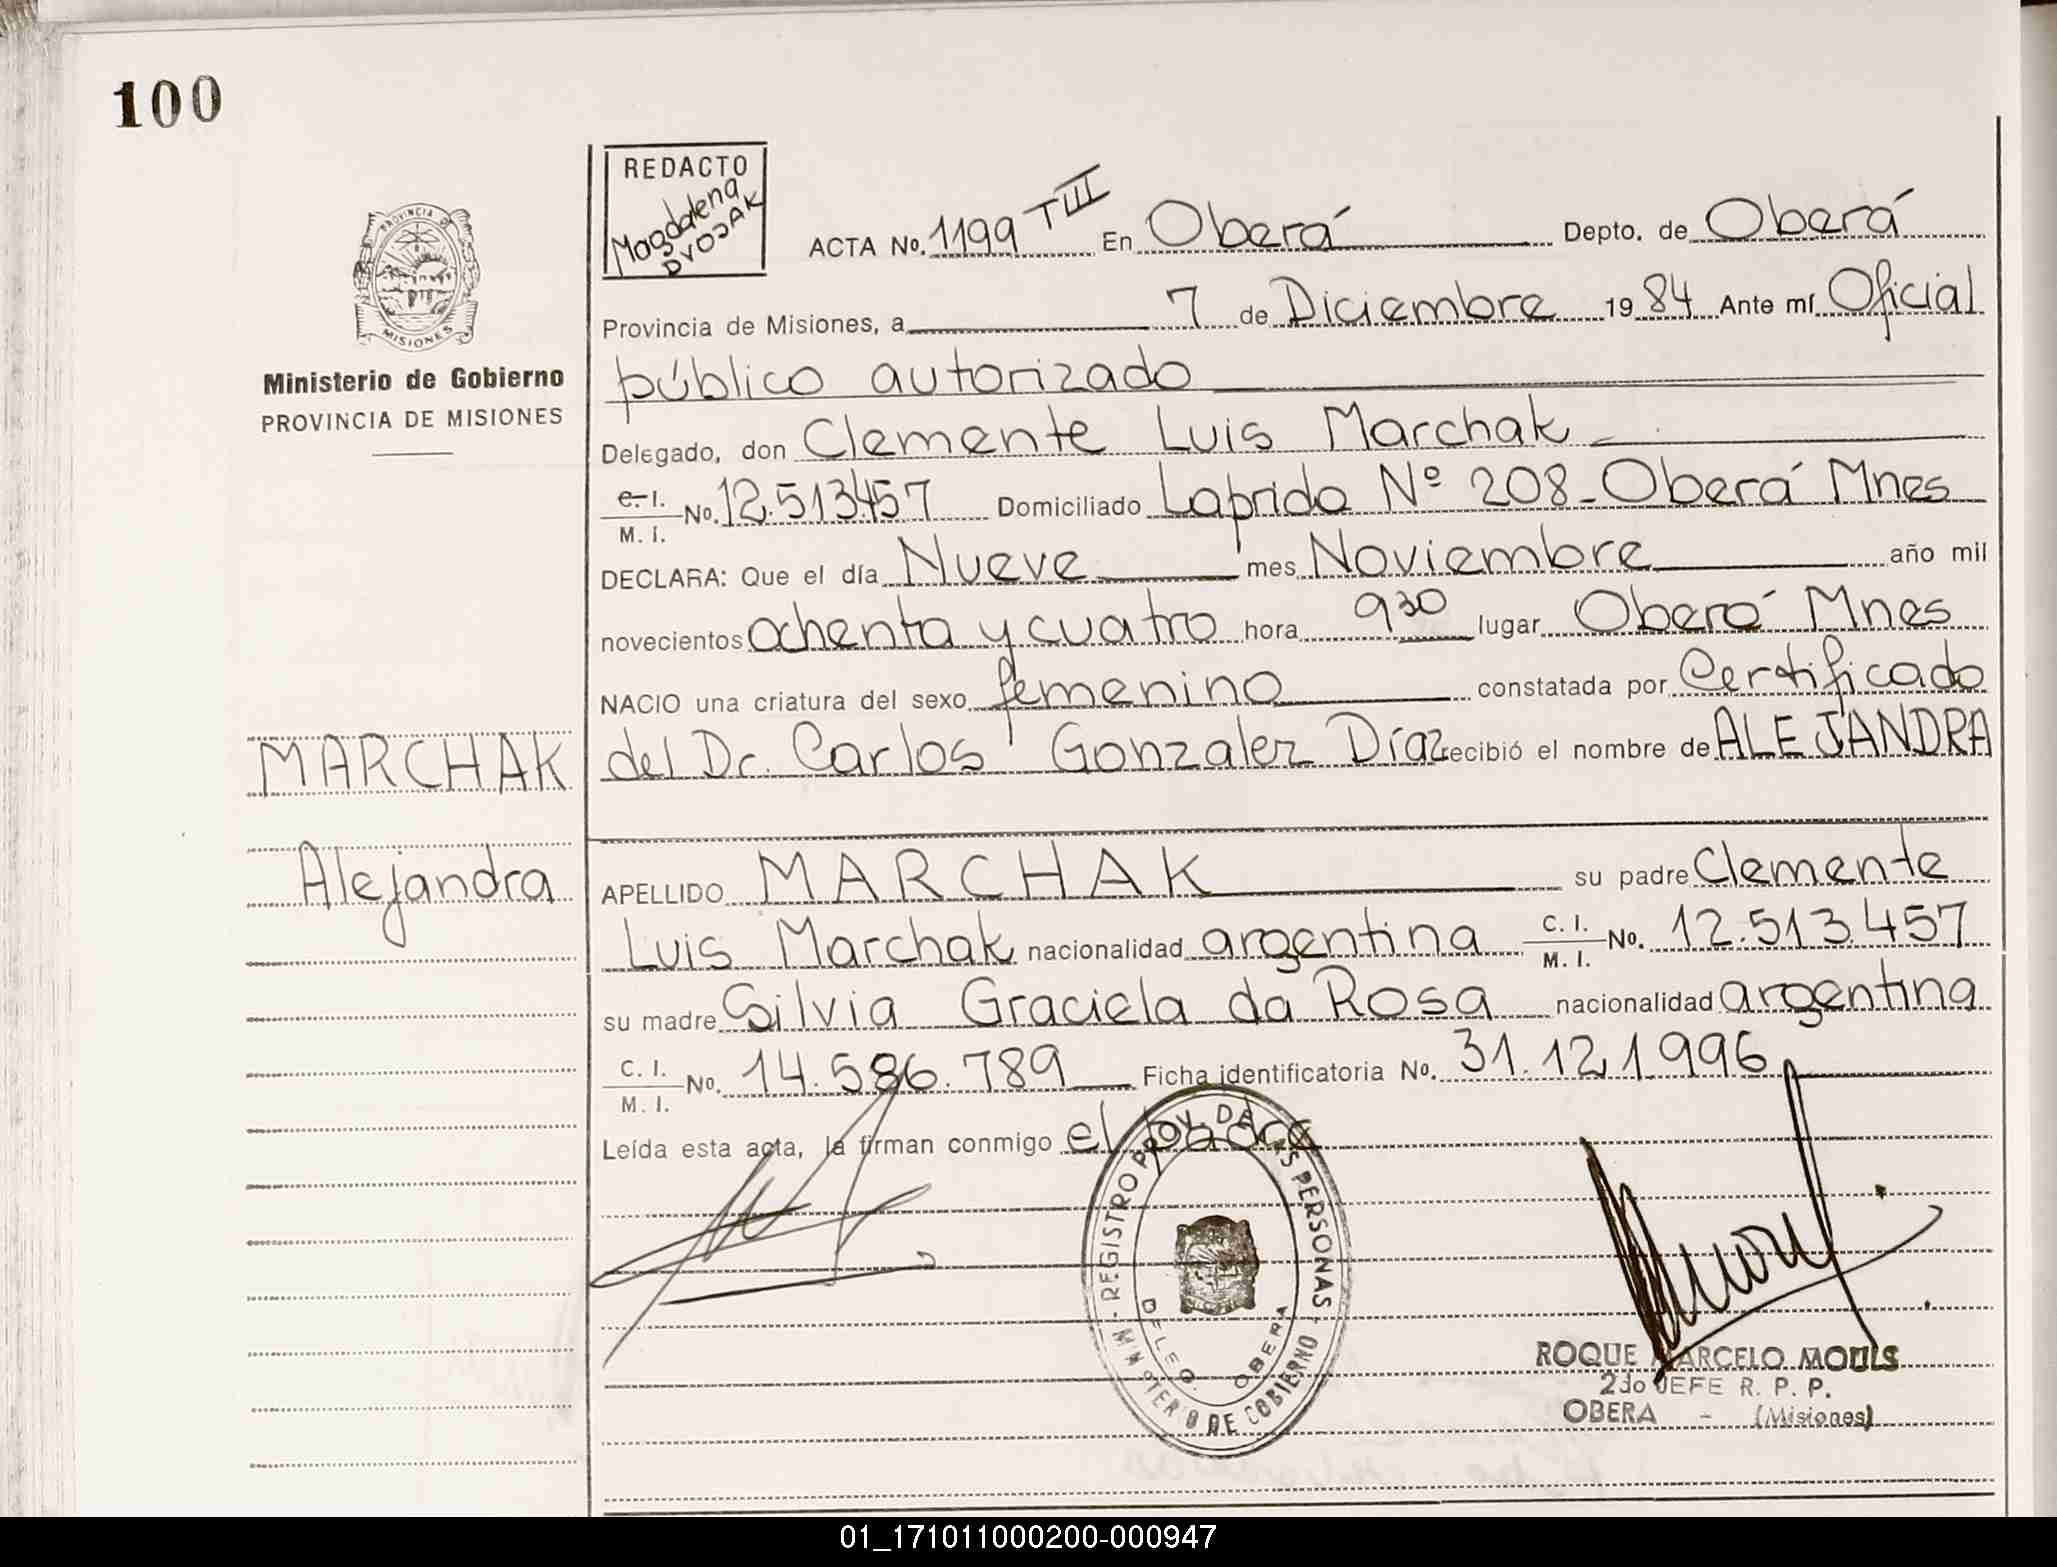 100
REDACTO
Magdalena
DVOJAK
ACTA No. 1199 TIII En Oberá Depto. de Oberá
PROVINCIA DE
MISIONES
Provincia de Misiones, a 7 de Diciembre 1984 Ante mí Oficial
Ministerio de Gobierno
PROVINCIA DE MISIONES
público autorizado
Delegado, don Clemente Luis Marchak
C. I.
M. I. No. 12.513.457 Domiciliado Laprida Nº 208 - Oberá Mnes
DECLARA: Que el día Nueve mes Noviembre año mil
novecientos ochenta y cuatro hora 9 30 lugar Oberá Mnes
NACIO una criatura del sexo femenino constatada por Certificado
del Dr. Carlos Gonzalez Díaz recibió el nombre de ALEJANDRA
MARCHAK
Alejandra
APELLIDO MARCHAK su padre Clemente
Luis Marchak nacionalidad argentina C. I.
M. I. No. 12.513.457
su madre Silvia Graciela da Rosa nacionalidad argentina
C. I.
M. I. No. 14.586.789 Ficha identificatoria No. 31.121.996
Leída esta acta, la firman conmigo el padre
REGISTRO PROV. DE LAS PERSONAS
MINISTERIO DE GOBIERNO
DELEG. OBERA
ROQUE MARCELO MOULS
2do JEFE R. P. P.
OBERA - (Misiones)
01_171011000200-000947